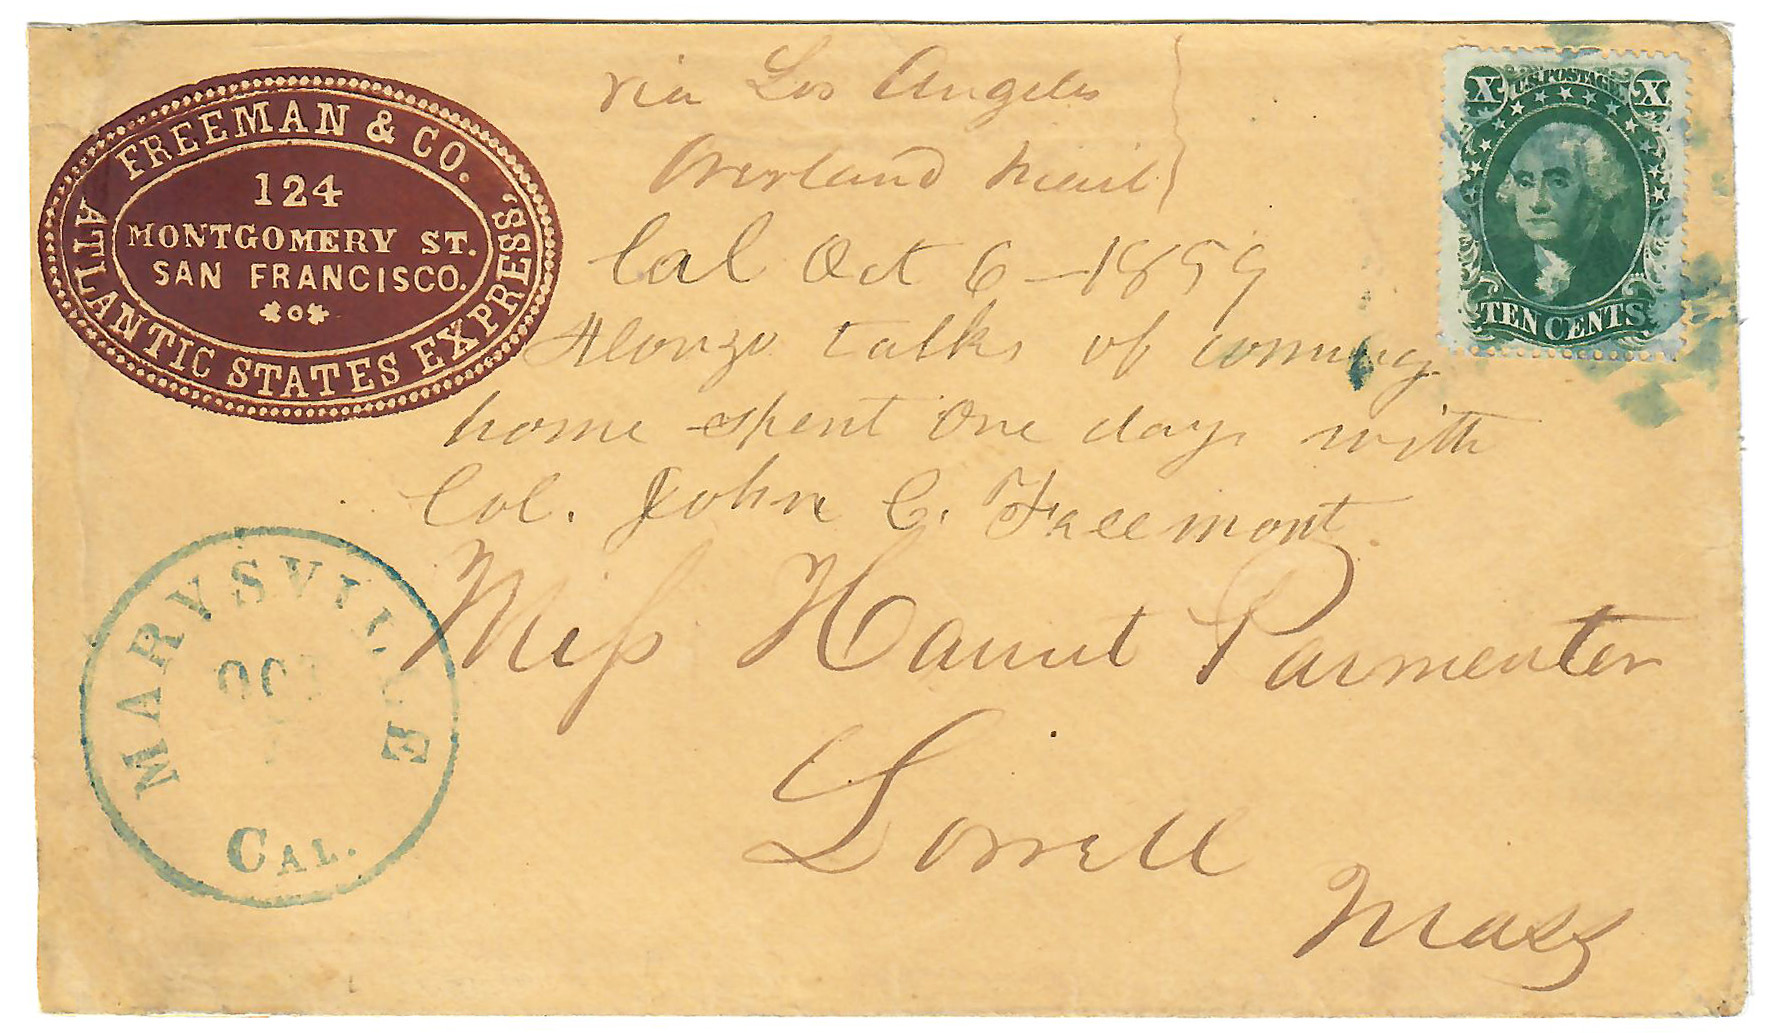 FREEMAN & CO.
ATLANTIC STATES EXPRESS,
124
MONTGOMERY ST.
SAN FRANCISCO.
via Los Angeles
Overland Mail
U.S. POSTAGE
X X
TEN CENTS
Cal Oct 6 - 1859
Alonzo talks of coming
home spent one day with
Col. John C. Freemont.
Miss Parmenter
Lowell
Mass
MARYSVILLE
OCT
CAL.